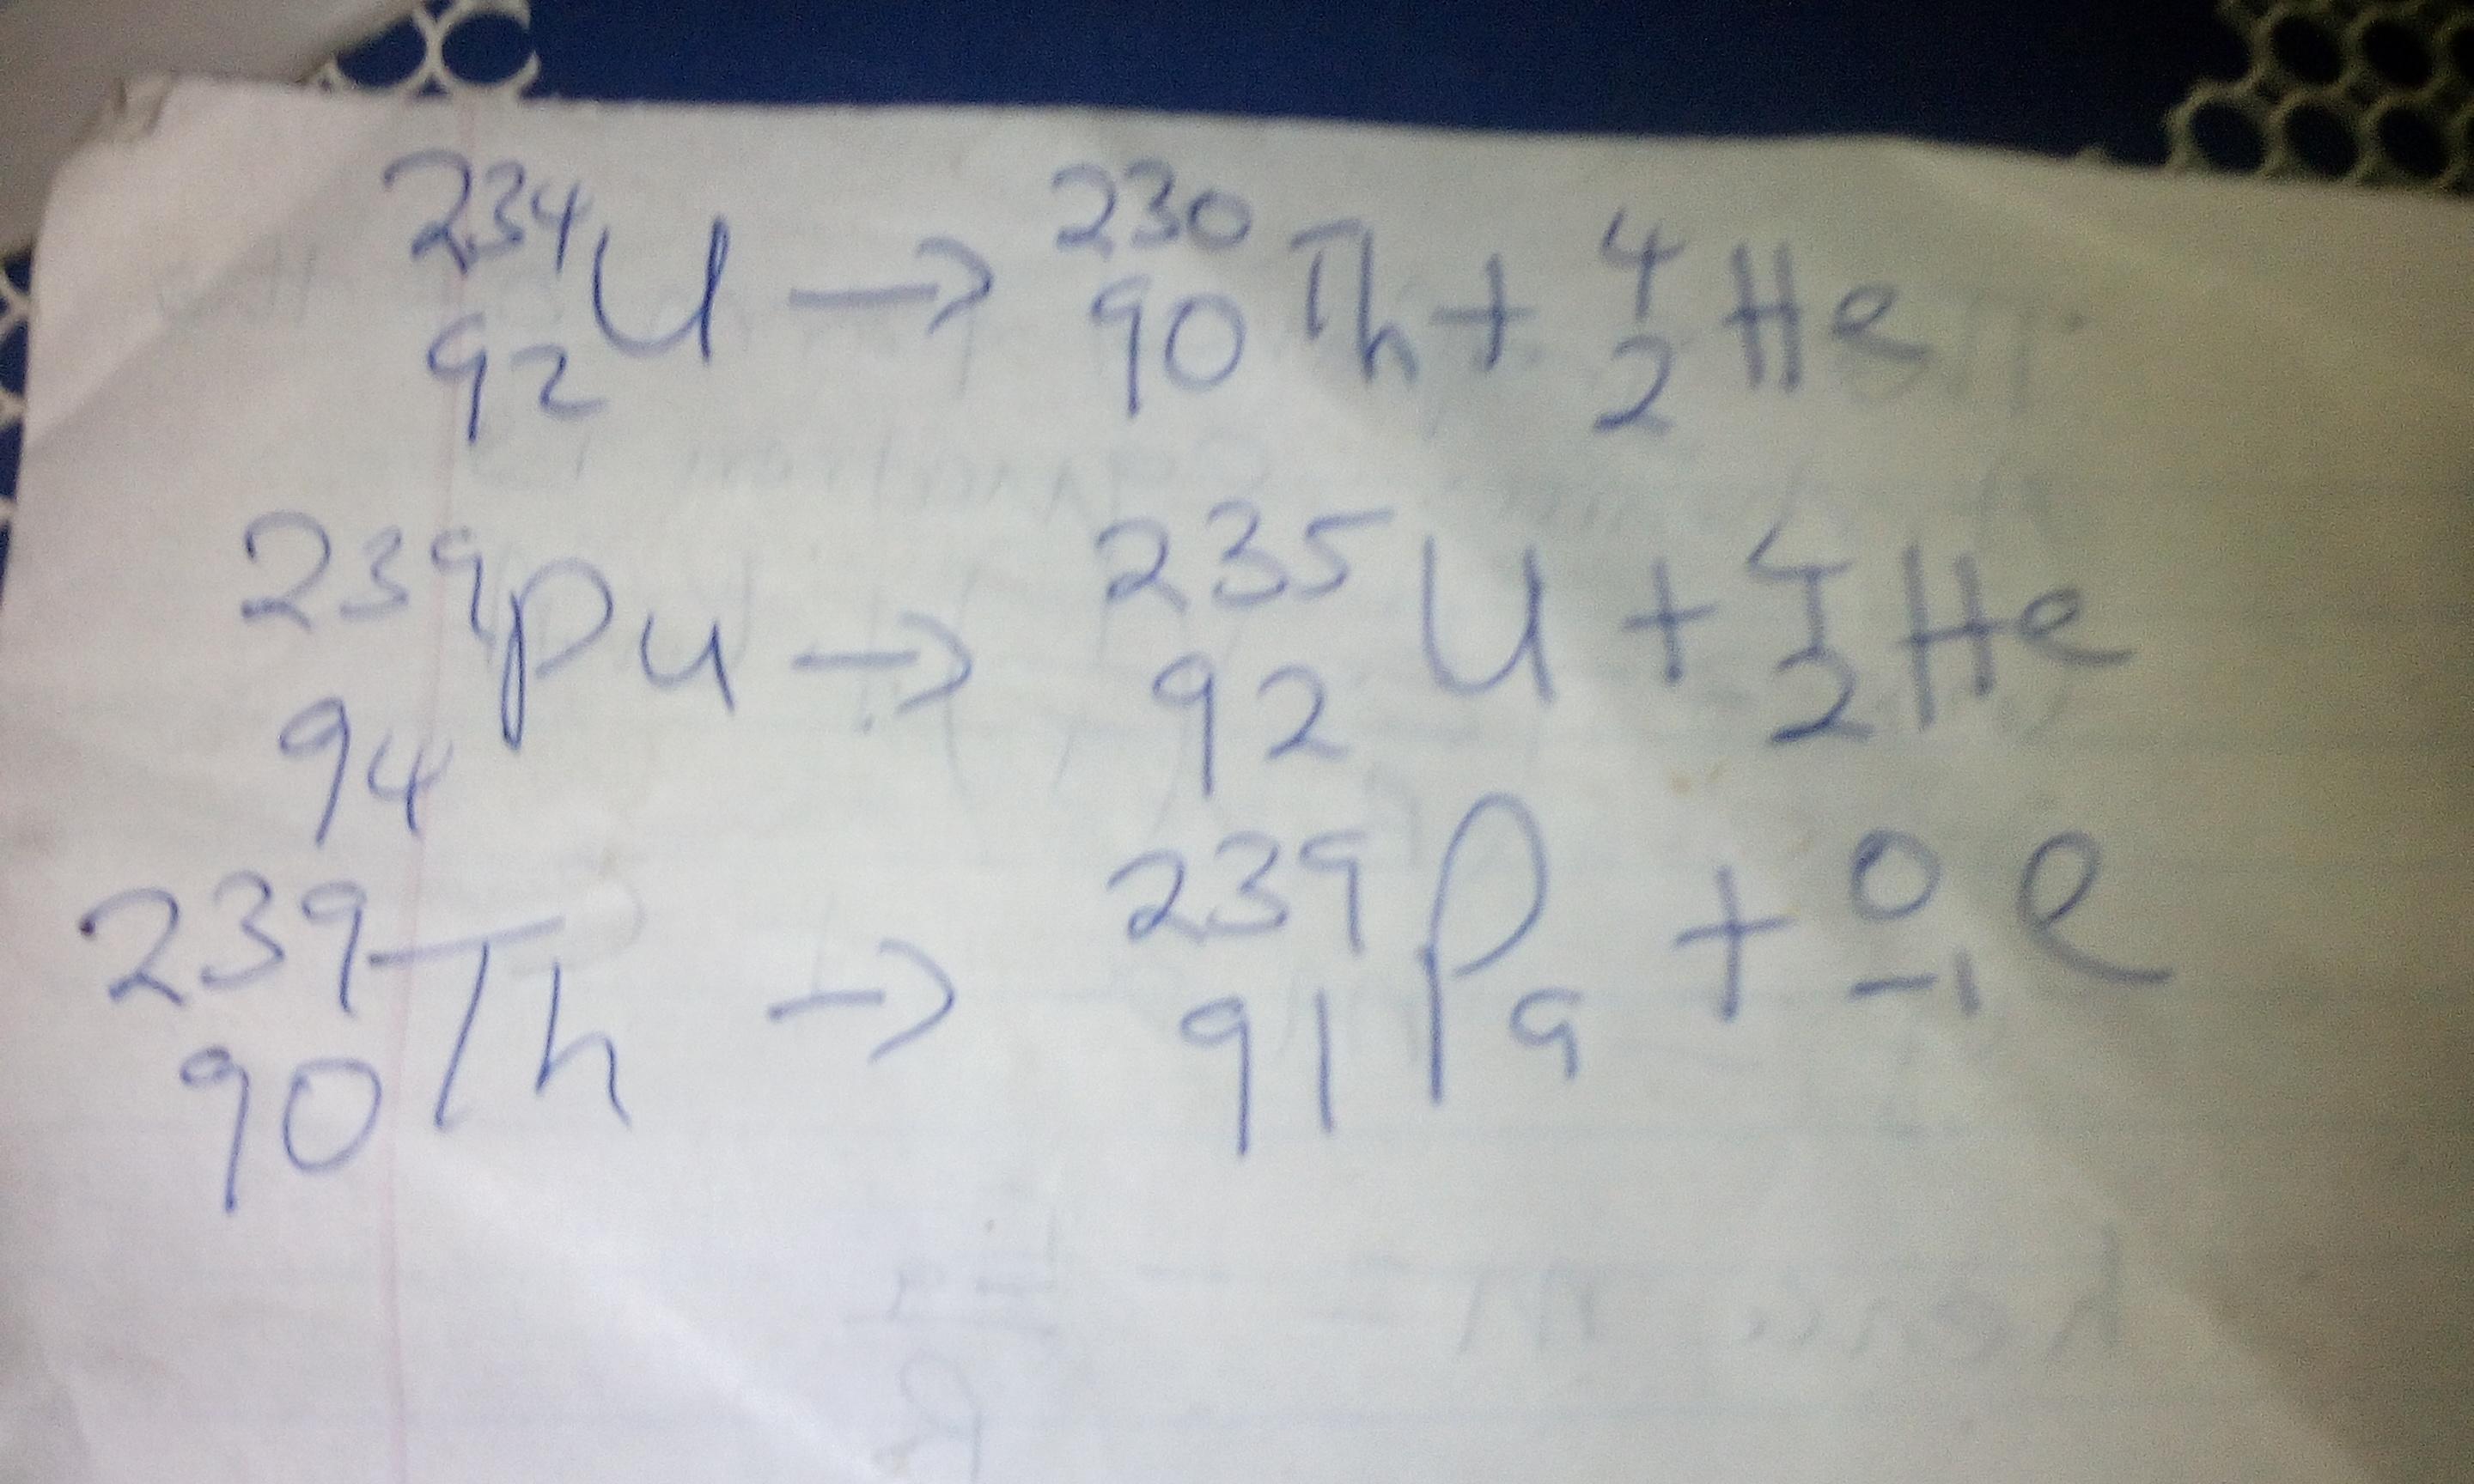 ²³⁴₉₂U → ²³⁰₉₀Th + ⁴₂He
²³⁹₉₄Pu → ²³⁵₉₂U + ⁴₂He
²³⁹₉₀Th → ²³⁹₉₁Pa + ⁰₋₁e